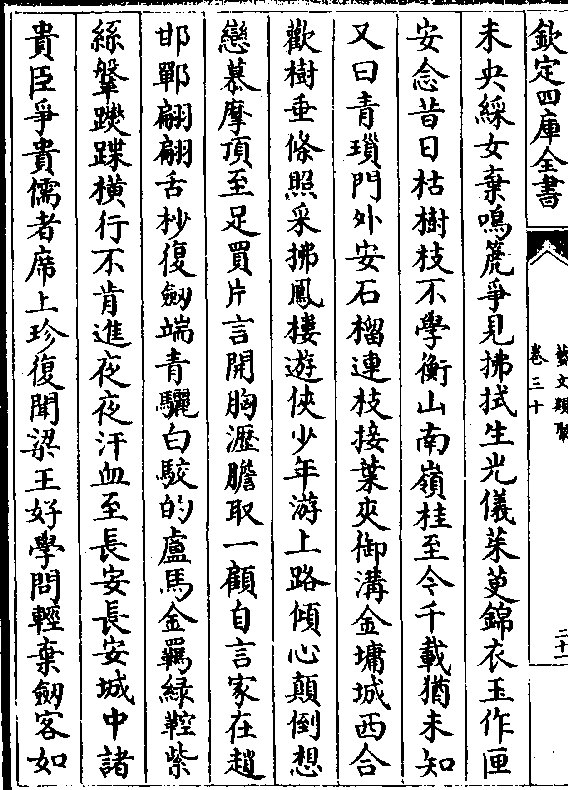 欽定四庫全書
藝文類聚
卷三十
二十二
未央綵女棄鳴箎爭見拂拭生光儀茱萸錦衣玉作匣
安念昔日枯樹枝不學衡山南嶺桂至今千載猶未知
又曰青瑣門外安石榴連枝接葉夾御溝金墉城西合
歡樹垂條照采拂鳳樓遊俠少年游上路傾心顛倒想
戀慕摩頂至足買片言開胸瀝膽取一顧自言家在趙
邯鄲翩翩舌杪復劔端青驪白駮的盧馬金羈綠鞚紫
絲鞶躞蹀橫行不肯進夜夜汗血至長安長安城中諸
貴臣爭貴儒者席上珍復聞梁王好學問輕棄劔客如